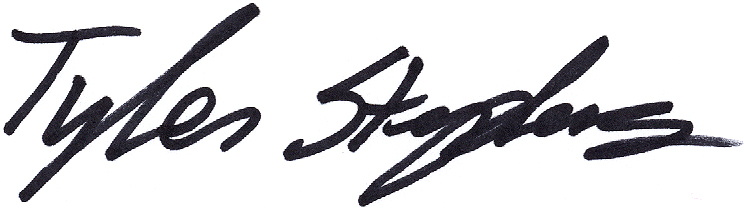 Tyler Stephens